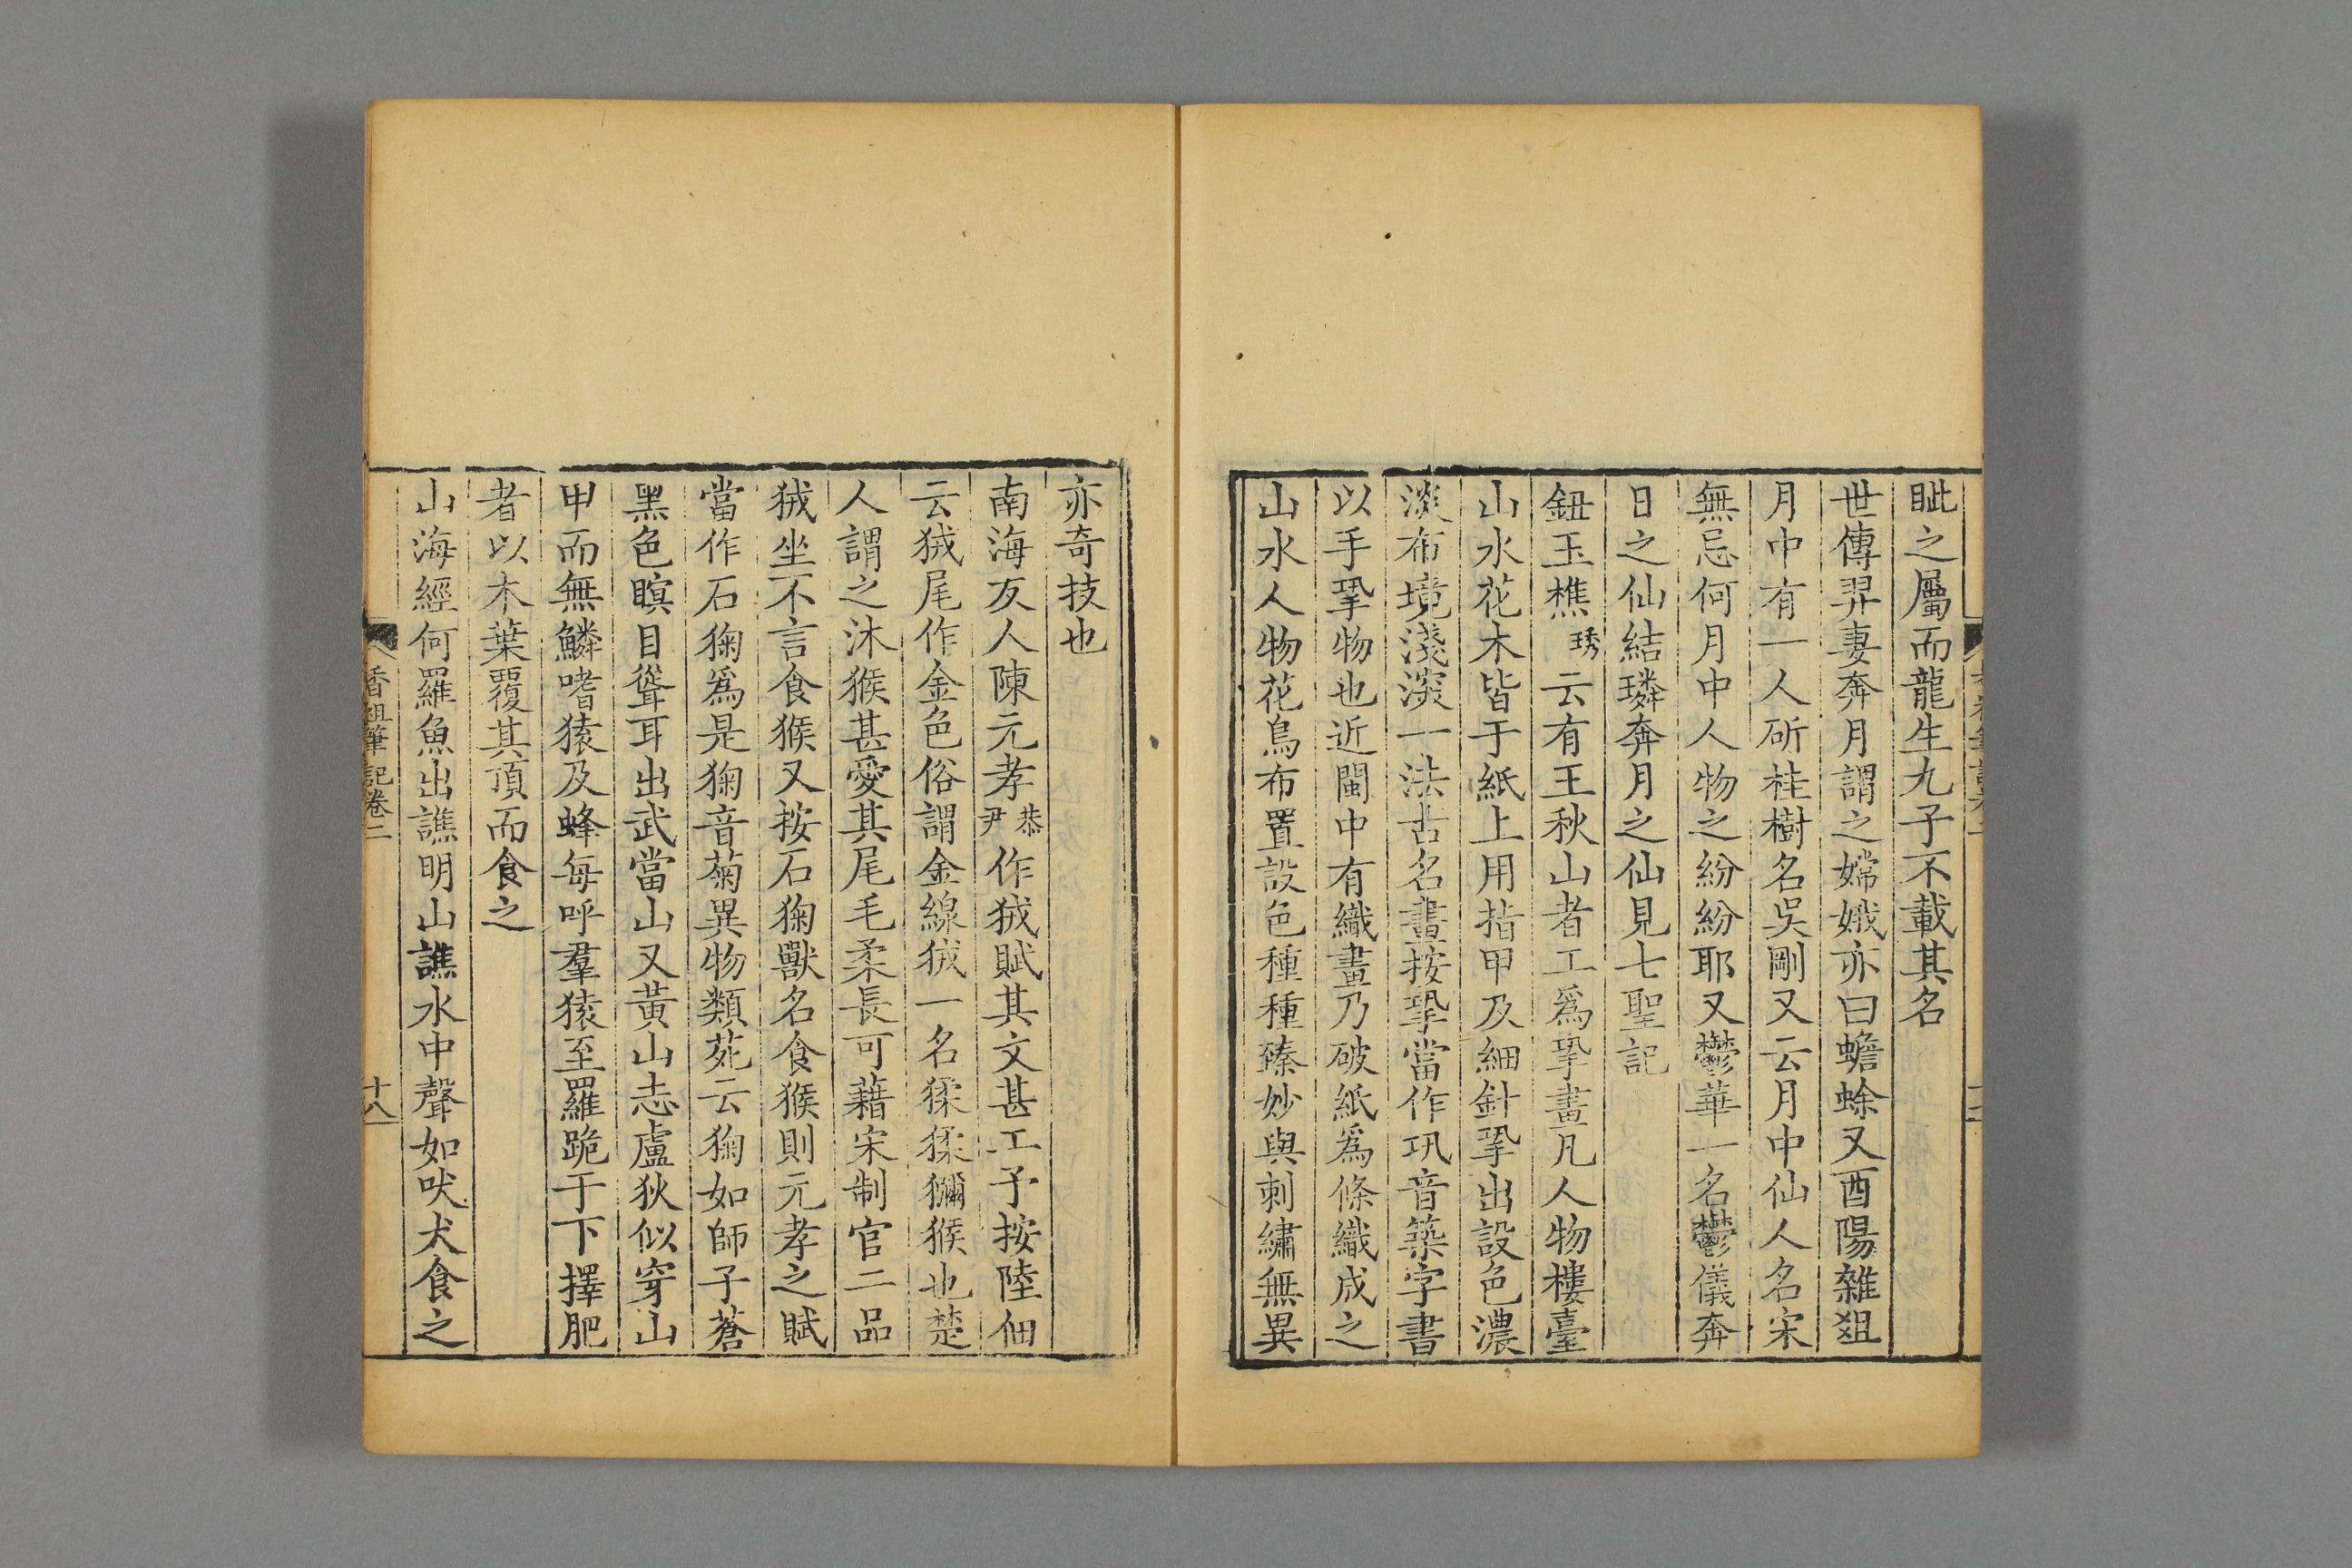 眦之屬而龍生九子不載其名
世傳羿妻奔月謂之嫦娥亦曰蟾蜍又酉陽雜俎
月中有一人斫桂樹名吳剛又云月中仙人名宋
無忌何月中人物之紛紛耶又鬱華一名鬱儀奔
日之仙結璘奔月之仙見七聖記
鈕玉樵琇云有王秋山者工爲㧬畫凡人物樓臺
山水花木皆于紙上用指甲及細針㧬出設色濃
淡布境淺深一法古名畫按㧬當作巩音築字書
以手㧬物也近閩中有織畫乃破紙爲條織成之
山水人物花鳥布置設色種種臻妙與刺繡無異
亦奇技也
南海友人陳元孝恭尹作狨賦其文甚工予按陸佃
云狨尾作金色俗謂金線狨一名猱猱獼猴也楚
人謂之沐猴甚愛其尾毛柔長可藉宋制官二品
狨坐不言食猴又按石㹼獸名食猴則元孝之賦
當作石㹼爲是㹼音菊異物類苑云㹼如師子蒼
黑色瞑目聳耳出武當山又黃山志盧狄似穿山
甲而無鱗嗜猿及蜂每呼羣猿至羅跪于下擇肥
者以木葉覆其頂而食之
山海經何羅魚出譙明山譙水中聲如吠犬食之
香祖筆記卷二
十八